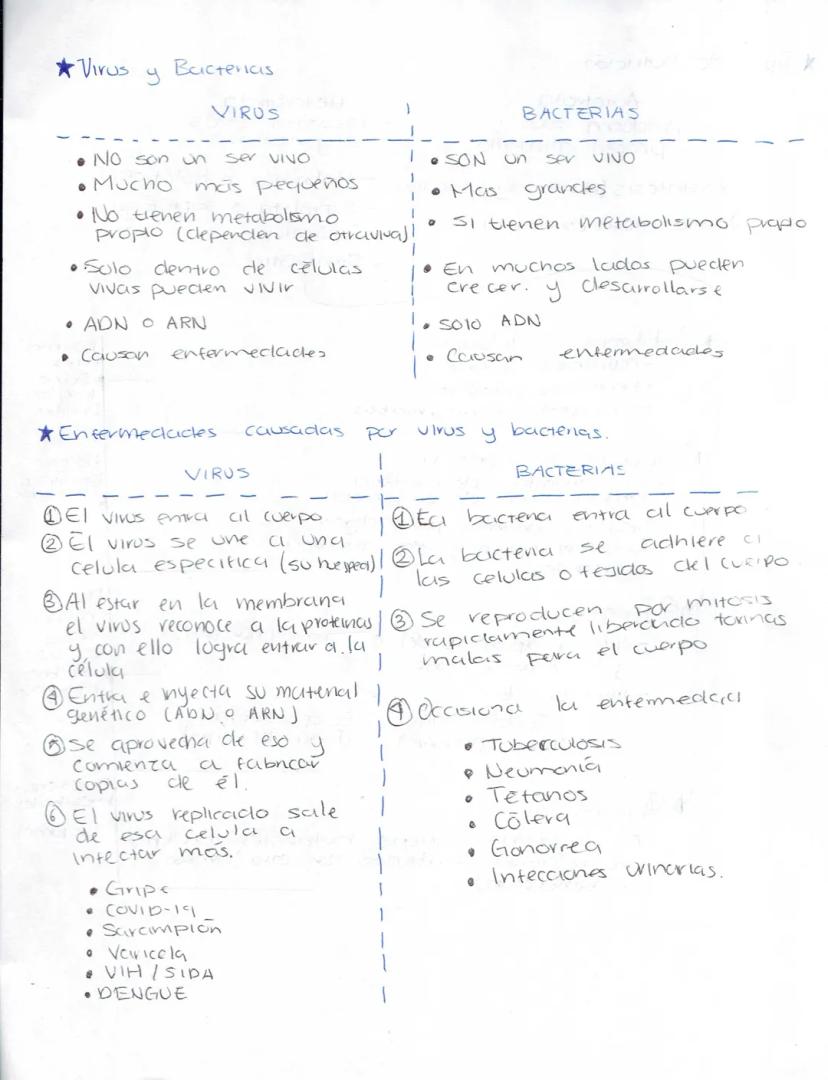 ★ Virus y Bacterias
VIRUS
• NO son un ser vivo
• Mucho más pequeños
• No tienen metabolismo
propio (dependen de otra viva)
• Solo dentro de células
vivas pueden vivir
• ADN o ARN
• Causan enfermedades
BACTERIAS
• SON un ser vivo
• Mas grandes
• SI tienen metabolismo propio
• En muchos lados pueden
crecer. y desarrollarse
• Solo ADN
• Causan enfermedades
★ Enfermedades causadas por virus y bacterias.
VIRUS
① El virus entra al cuerpo
② El virus se une a una
celula especifica (su huesped)
③ Al estar en la membrana
el virus reconoce a la proteinas
y con ello logra entrar a la
célula
④ Entra e inyecta su material
genético (ADN o ARN)
⑤ Se aprovecha de eso y
comienza a fabricar
copias de él.
⑥ El virus replicado sale
de esa celula a
infectar más.
• Gripe
• COVID-19
• Sarampión
• Varicela
• VIH / SIDA
• DENGUE
BACTERIAS
① La bacteria entra al cuerpo
② La bacteria se adhiere a
las celulas o tejidos del cuerpo
③ Se reproducen por mitosis
rapidamente liberando toxinas
malas para el cuerpo
④ Occisiona la enfermedad
• Tuberculosis
• Neumonía
• Tétanos
• Cólera
• Gonorrea
• Infecciones urinarias.